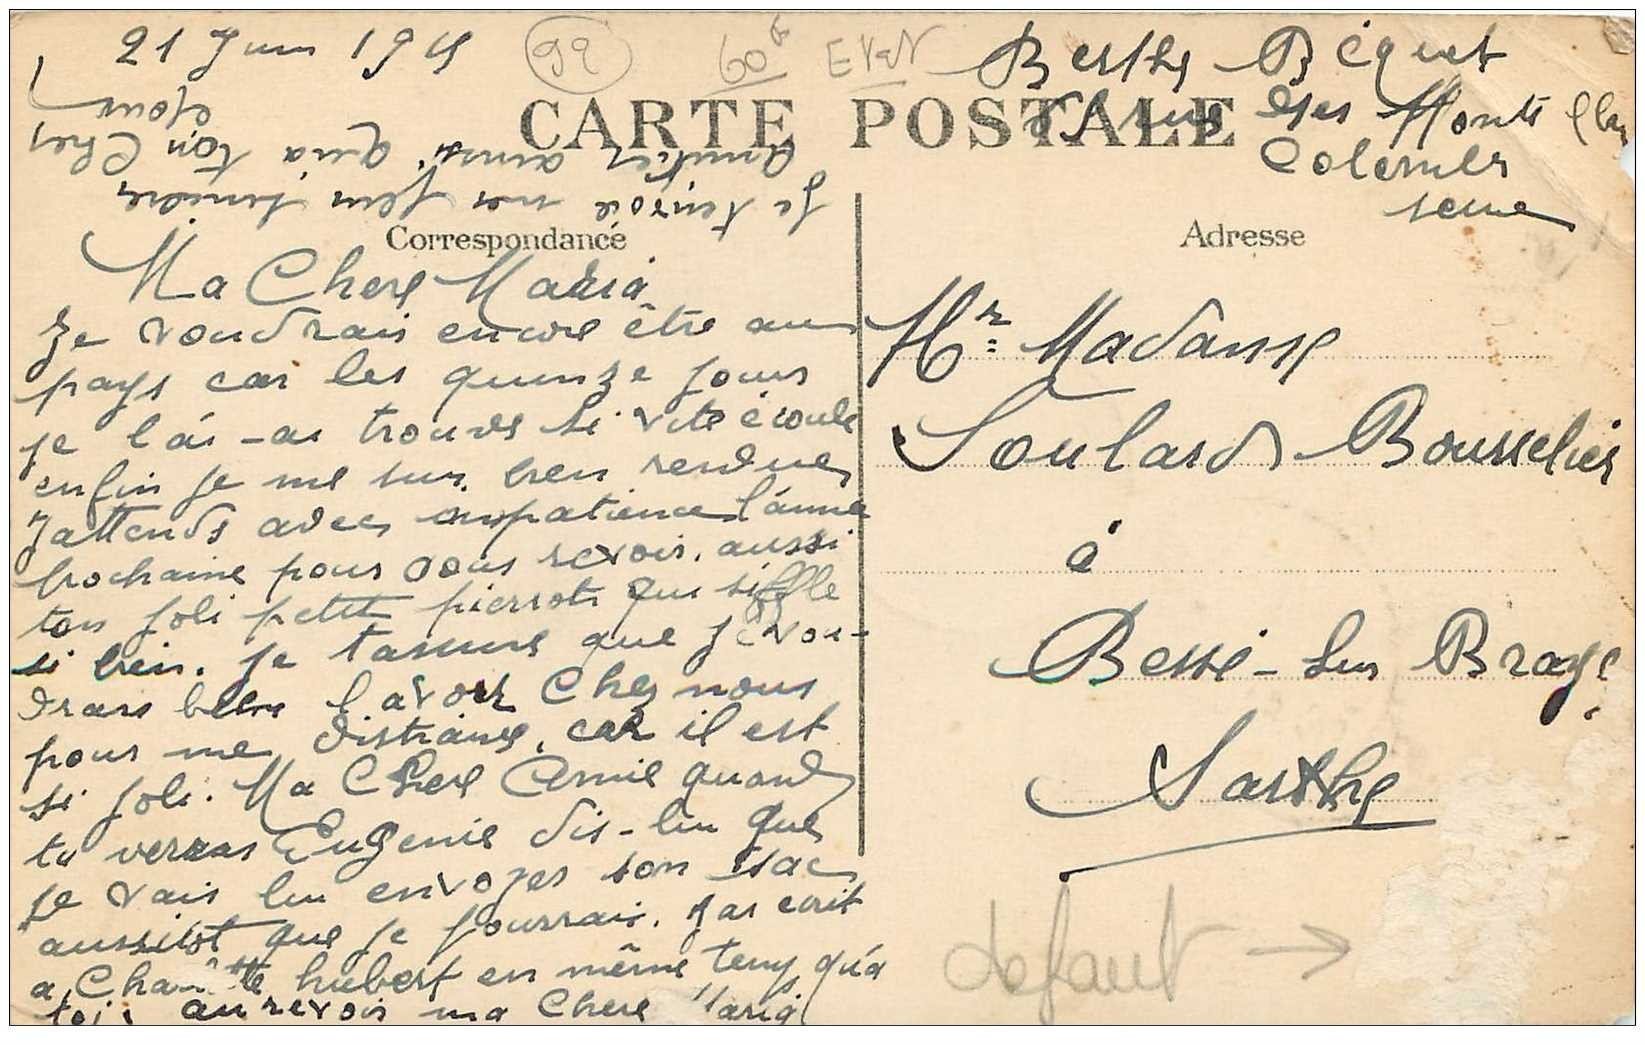 21 Juin 1915
92
60f
EVEN
Berthe Béquet
rue des Monts Clairs
Colombes
Seine
CARTE POSTALE
Correspondance
Adresse
Ma Chere Maria
Je voudrais encore être au
pays car les quinze jours
je l'ai-ai trouvé si vite écoulé
enfin je me suis bien rendue
J'attends avec impatience l'année
prochaine pour vous revoir. aussi
ton joli petit pierrot qui siffle
si bien. je t'assure que je vou-
drais bien l'avoir Chez nous
pour me distraire, car il est
si joli. Ma Chere Amie quand
tu verras Eugenie dis-lui que
je vais lui envoyer son sac
aussitot que je pourrai. J'ai ecrit
a Charlotte hubert en même temps qu'a
toi. au revoir ma Chere Maria
Je t'envoie mes plus sincères
Amitiés ainsi qu'a ton Cher
Epoux
Mr Madame
Soulard Bousselier
à
Bessé-Sur Braye
Sarthe
defaut →